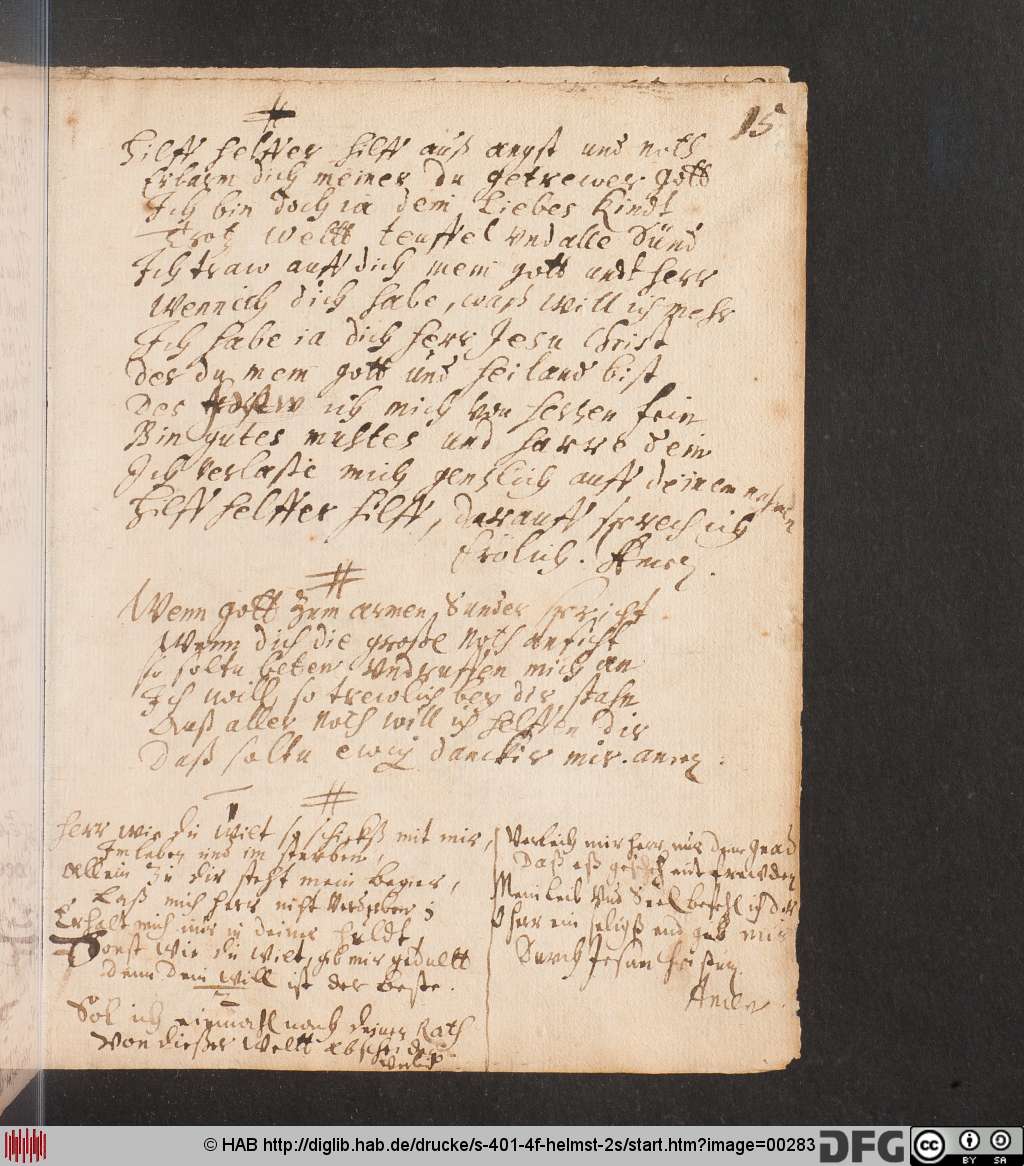 15
Hilff helffer hilff auß angst und noth
Erbarm dich meiner du getrewer gott
Ich bin doch ia dein liebes Kindt
Trotz weltt teuffel vnd alle Sünd
Ich traw auff dich mein gott undt herr
Wenn ich dich habe, waß will ich mehr
Ich habe ia dich herr Jesu Christ
Der du mein gott und heiland bist
Des ich mich von hertzen fein
Bin gutes muhtes und harre dein
Ich verlaße mich gentzlich auff deinen nahmen
Hilff helffer hilff, darauff sprech ich
frölich. Amen.
Wenn gott zum armen Sunder spricht
Wenn dich die große Noth anficht
so soltu beten vnd ruffen mich an
Ich will so trewlich bey dir stahn
Auß aller Noth will ich helffen dir
Daß soltu ewig dancken mir. amen.
1
Herr wie du wilt so schickß mit mir,
Im leben und im sterben,
allein zu dir steht mein begier,
Laß mich herr nicht verderben
Erhalt mich nur in deiner huldt
Sonst wie du wilt, gib mir gedultt
denn dein will ist der beste.
2
Sol ich einmahl nach deinem Rath
Von dießer weltt abscheiden
Verleich mir herr nur dein gnad
Daß eß gescheh mit frewden
Mein leib vnd Seel befehl ich dir
O herr ein seligß end gib mir
Durch Jesum Christum
Amen.
© HAB http://diglib.hab.de/drucke/s-401-4f-helmst-2s/start.htm?image=00283
DFG
cc
BY SA